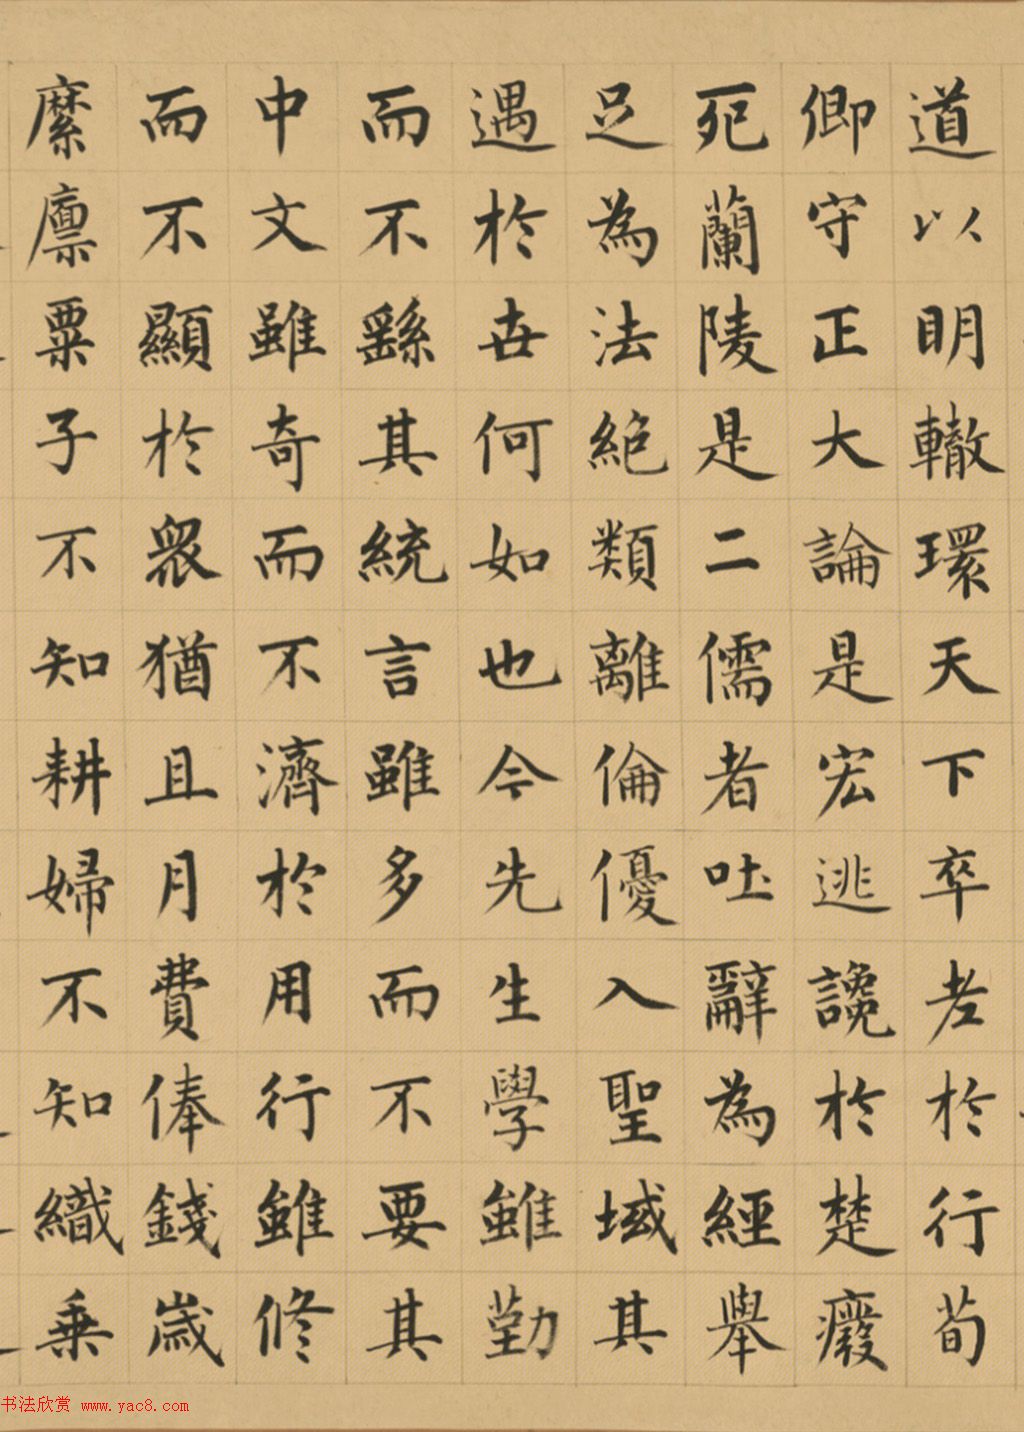 道以明轍環天下卒老於行荀
卿守正大論是宏逃讒於楚癈
死蘭陵是二儒者吐辭為經舉
足為法絕類離倫優入聖域其
遇於世何如也今先生學雖勤
而不繇其統言雖多而不要其
中文雖奇而不濟於用行雖修
而不顯於衆猶且月費俸錢歲
縻廩粟子不知耕婦不知織乗
书法欣赏 www.yac8.com